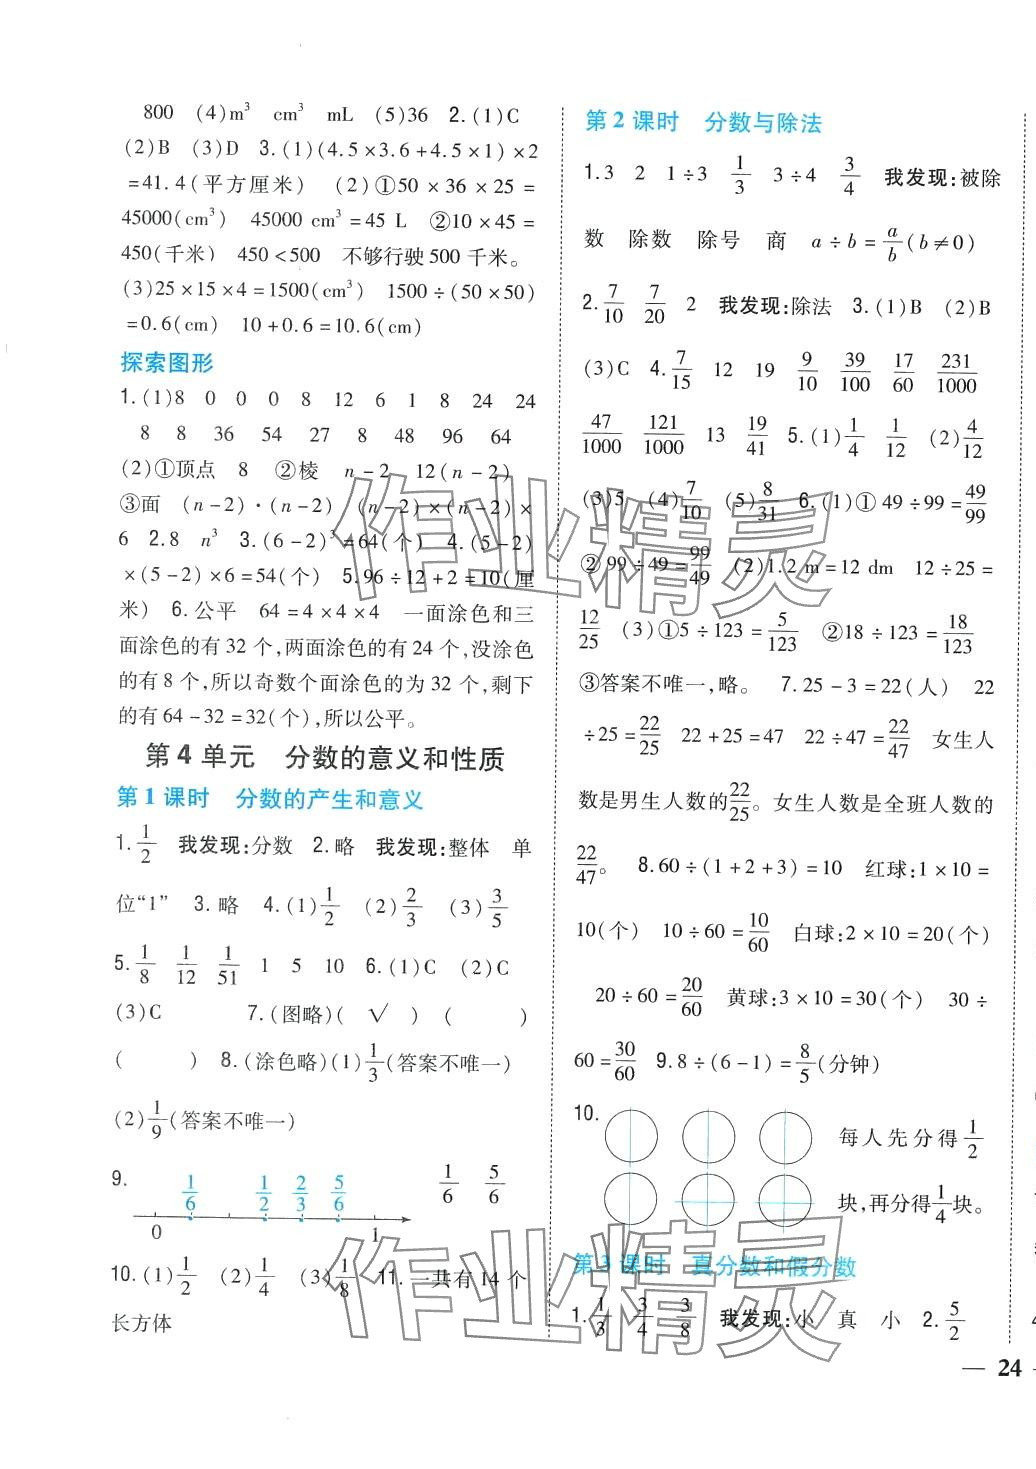 800 (4)m³ cm³ mL (5)36 2.(1)C
(2)B (3)D 3.(1)(4.5×3.6+4.5×1)×2
=41.4(平方厘米) (2)①50×36×25=
45000(cm³) 45000 cm³=45 L ②10×45=
450(千米) 450<500 不够行驶500千米。
(3)25×15×4=1500(cm³) 1500÷(50×50)
=0.6(cm) 10+0.6=10.6(cm)
探索图形
1.(1)8 0 0 0 8 12 6 1 8 24 24
8 8 36 54 27 8 48 96 64
(2)①顶点 8 ②棱 n-2 12(n-2)
③面 (n-2)·(n-2) (n-2)×(n-2)×
6 2.8 n³ 3.(6-2)³=64(个) 4.(5-2)
×(5-2)×6=54(个) 5.96÷12+2=10(厘
米) 6.公平 64=4×4×4 一面涂色和三
面涂色的有32个,两面涂色的有24个,没涂色
的有8个,所以奇数个面涂色的为32个,剩下
的有64-32=32(个),所以公平。
第4单元 分数的意义和性质
第1课时 分数的产生和意义
1.1/2 我发现:分数 2.略 我发现:整体 单
位“1” 3.略 4.(1)1/2 (2)2/3 (3)3/5
5.1/8 1/12 1/51 1 5 10 6.(1)C (2)C
(3)C 7.(图略)( √ ) ( )
( ) 8.(涂色略)(1)1/3(答案不唯一)
(2)1/9(答案不唯一)
9. 1/6 1/2 2/3 5/6 1/6 5/6
0 1
10.(1)1/2 (2)1/4 (3)1/8 11.一共有14个
长方体
第2课时 分数与除法
1.3 2 1÷3 1/3 3÷4 3/4 我发现:被除
数 除数 除号 商 a÷b=a/b(b≠0)
2.7/10 7/20 2 我发现:除法 3.(1)B (2)B
(3)C 4.7/15 12 19 9/10 39/100 17/60 231/1000
47/1000 121/1000 13 19/41 5.(1)1/4 1/12 (2)4/12
(3)5 (4)7/10 (5)8/31 6.(1)①49÷99=49/99
②99÷49=99/49 (2)1.2 m=12 dm 12÷25=
12/25 (3)①5÷123=5/123 ②18÷123=18/123
③答案不唯一,略。 7.25-3=22(人) 22
÷25=22/25 22+25=47 22÷47=22/47 女生人
数是男生人数的22/25。女生人数是全班人数的
22/47。 8.60÷(1+2+3)=10 红球:1×10=
10(个) 10÷60=10/60 白球:2×10=20(个)
20÷60=20/60 黄球:3×10=30(个) 30÷
60=30/60 9.8÷(6-1)=8/5(分钟)
10. 每人先分得1/2
块,再分得1/4块。
第3课时 真分数和假分数
1.1/3 3/4 3/8 我发现:小 真 小 2.5/2
— 24
作业精灵
作业精灵